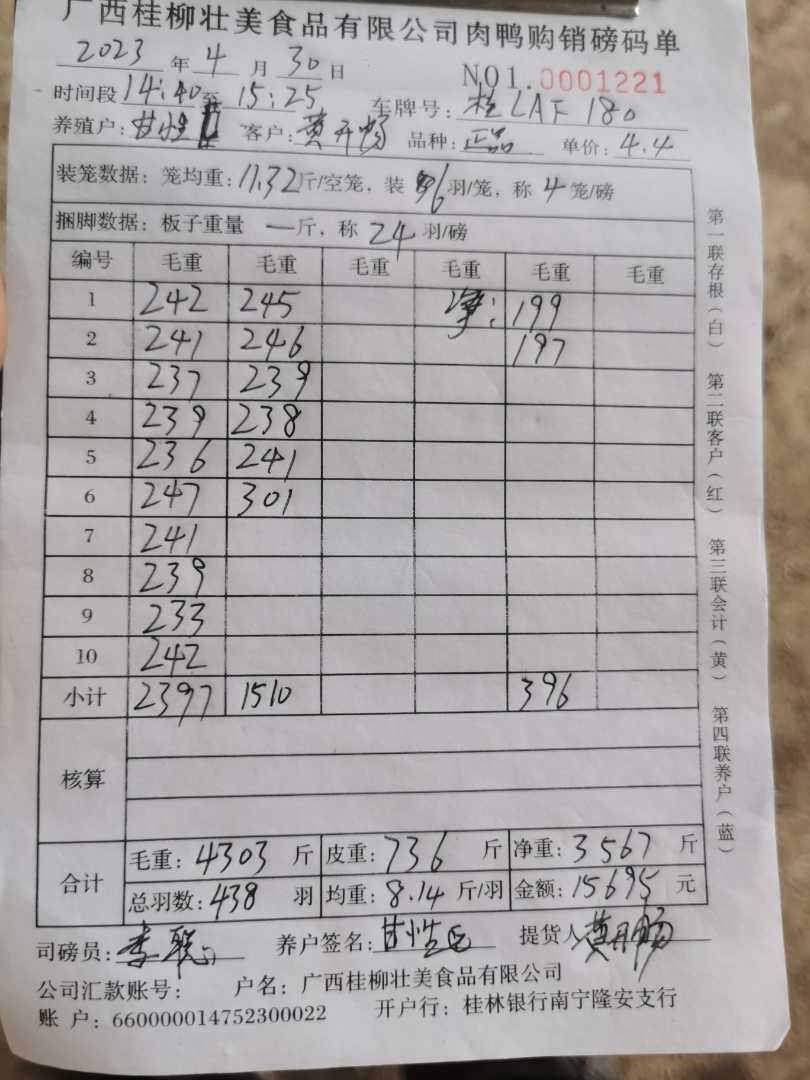 广西桂柳壮美食品有限公司肉鸭购销磅码单
2023 年 4 月 30 日 NO1.0001221
时间段 14:40 至 15:25 车牌号: 桂LAF180
养殖户: 甘性 客户: 黄开畅 品种: 正品 单价: 4.4
装笼数据: 笼均重: 11.32 斤/空笼, 装 6 羽/笼, 称 4 笼/磅
捆脚数据: 板子重量 一 斤, 称 24 羽/磅
编号 毛重 毛重 毛重 毛重 毛重 毛重
1 242 245 净: 199
2 241 246 197
3 237 239
4 239 238
5 236 241
6 247 301
7 241
8 239
9 233
10 242
小计 2397 1510 396
核算
合计 毛重: 4303 斤 皮重: 736 斤 净重: 3567 斤
总羽数: 438 羽 均重: 8.14 斤/羽 金额: 15695 元
司磅员: 李 养户签名: 甘性 提货人 黄开畅
公司汇款账号: 户名: 广西桂柳壮美食品有限公司
账 户: 660000014752300022 开户行: 桂林银行南宁隆安支行
第一联存根(白) 第二联客户(红) 第三联会计(黄) 第四联养户(蓝)